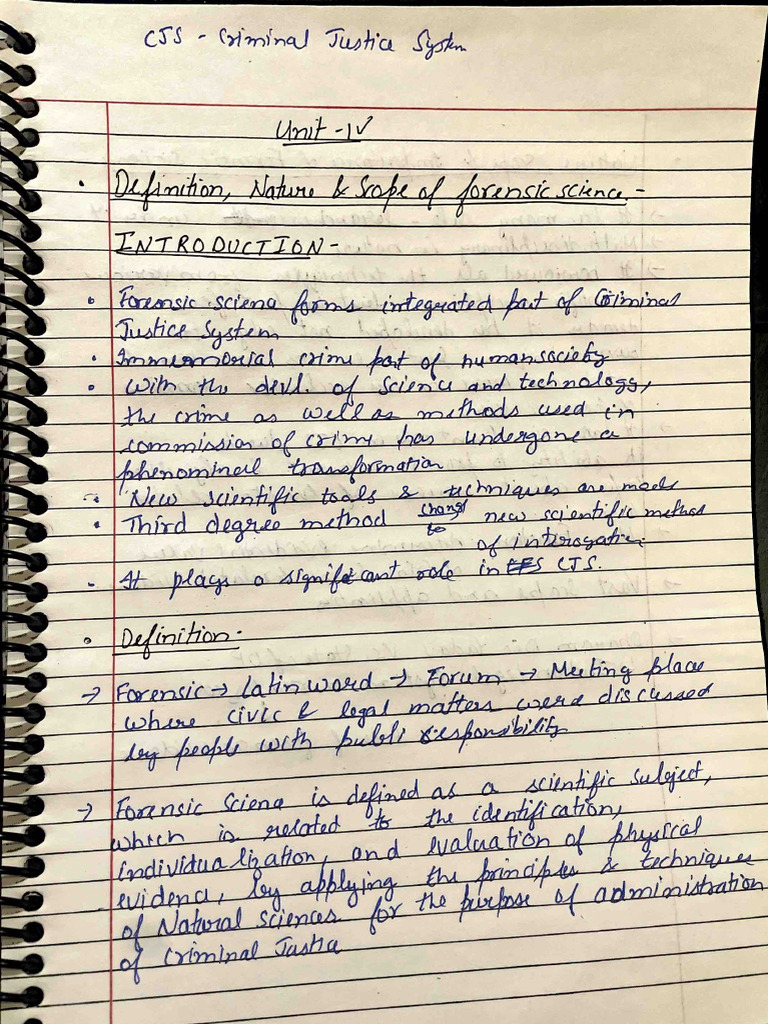 CJS - Criminal Justice System
Unit - IV
• Definition, Nature & Scope of forensic science -
INTRODUCTION -
• Forensic sciena forms integrated part of Criminal
Justice System
• Immermorial crime part of human society
• With the devl. of science and technology,
the crime as well as methods used in
commission of crime has undergone a
phenominal transformation
• New scientific tools & techniques are made
• Third degree method change to new scientific method
of interogation
• It plays a significant role in CJS.
• Definition -
→ Forensic → Latin word → Forum → Meeting place
where civic & legal matters were discussed
by people with publi responsibility
→ Forensic Sciena is defined as a scientific subject,
which is related to the identification,
individualization, and evaluation of physical
evidena, by applying the principles & techniques
of Natural sciences for the purpose of administration
of Criminal Justia